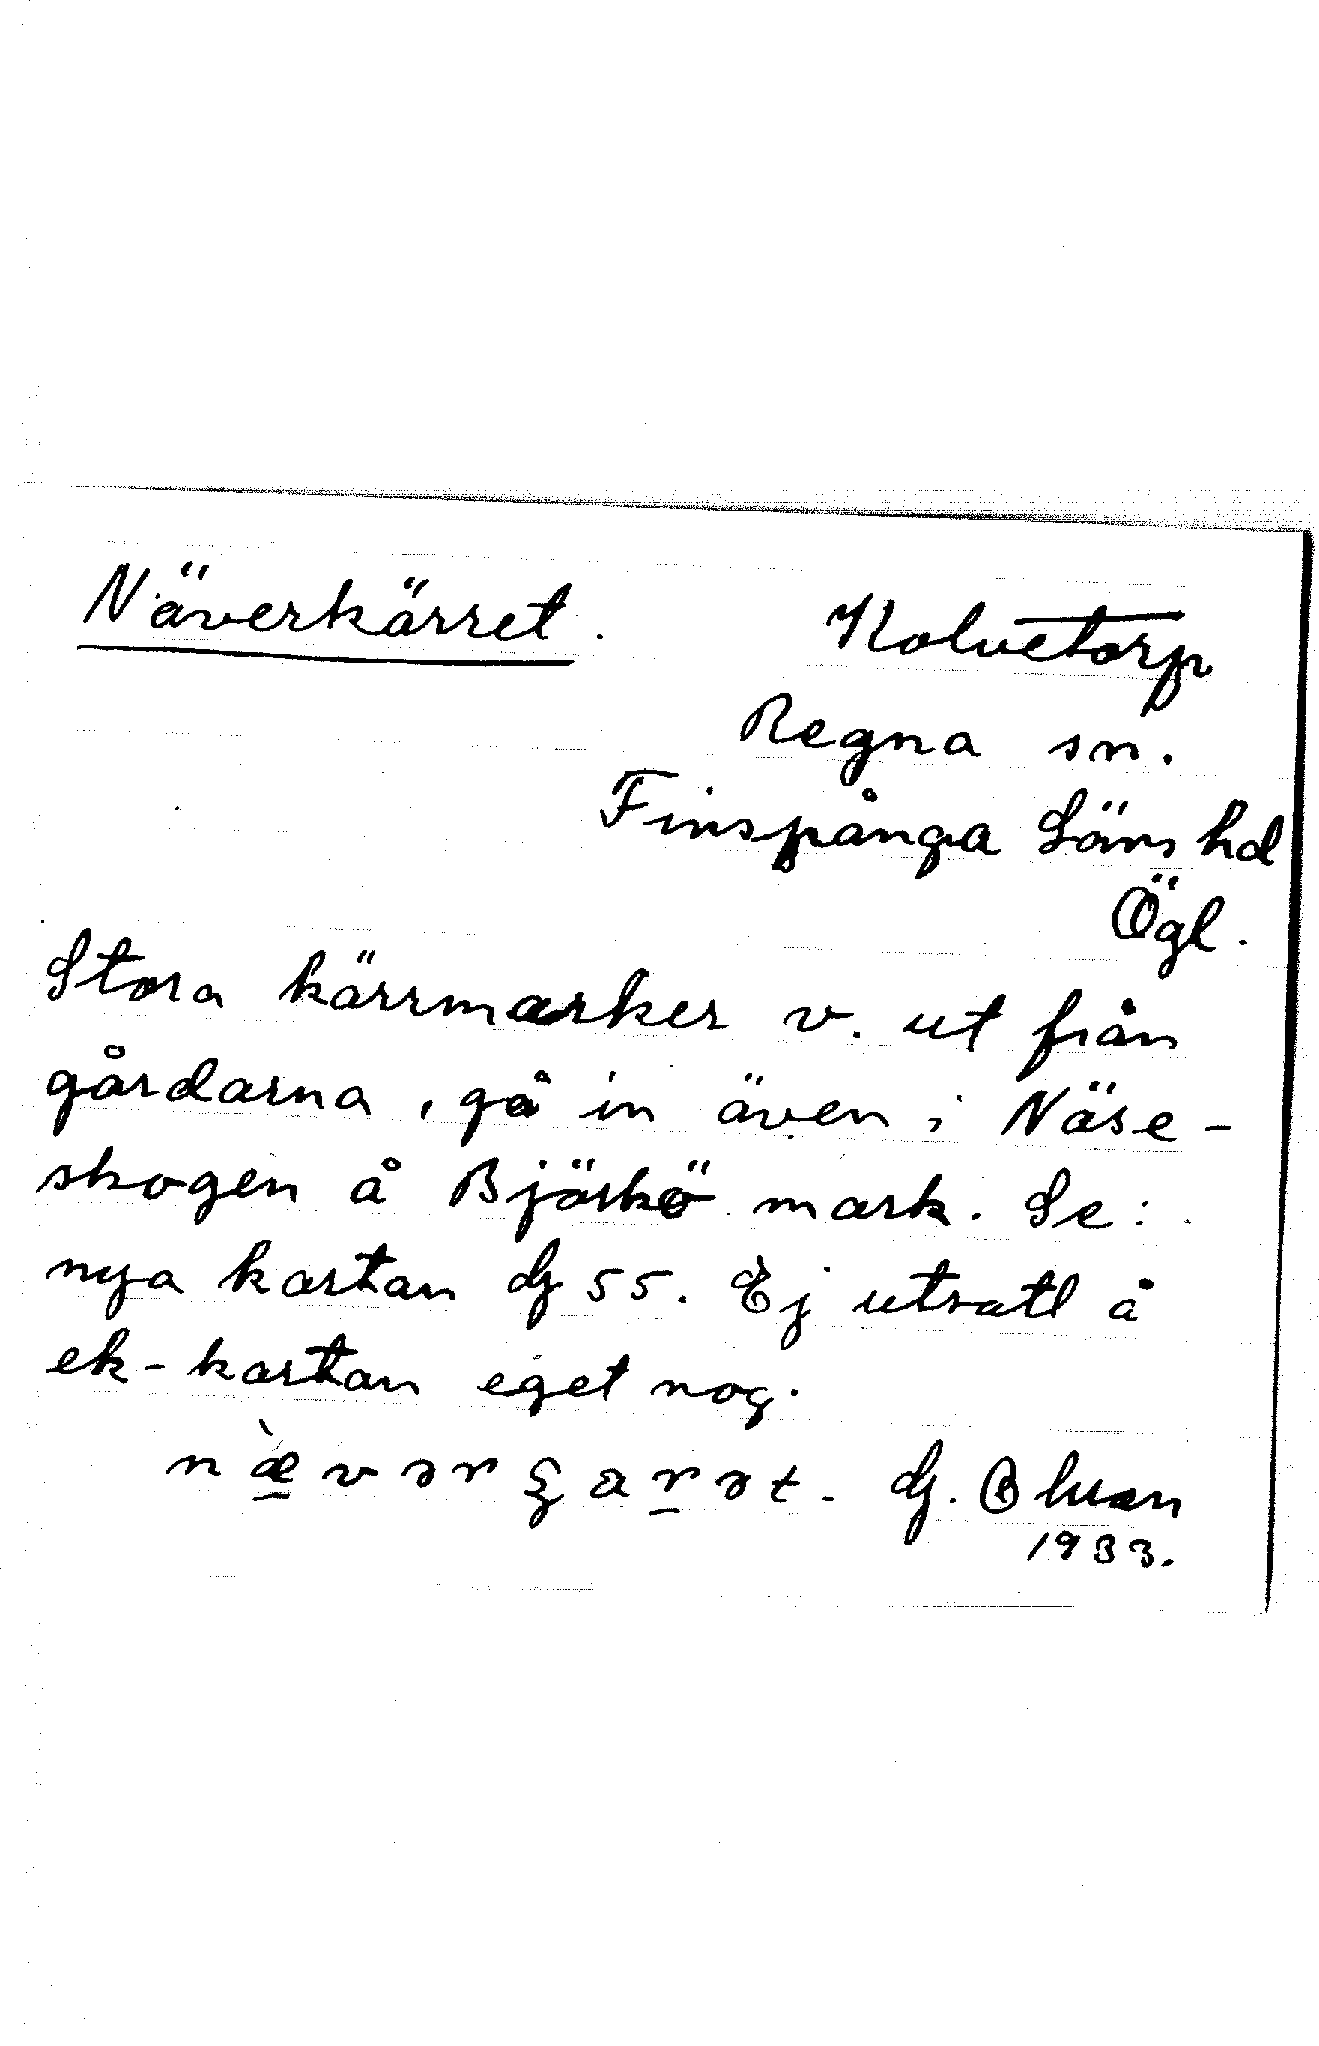 Näverkärret.
Kolvetorp
Regna sn.
Finspånga Läns hd
Ögl.
Stora kärrmarker v. ut från
gårdarna, gå in även i Näse-
skogen å Björkö mark. Se:
nya kartan dj 55. Ej utsatt å
ek-kartan eget nog.
næ̀vərʂarət. dj.
1933.